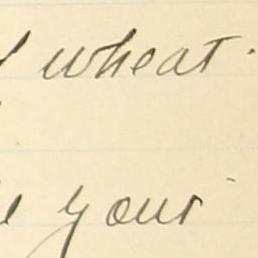 wheat.
your